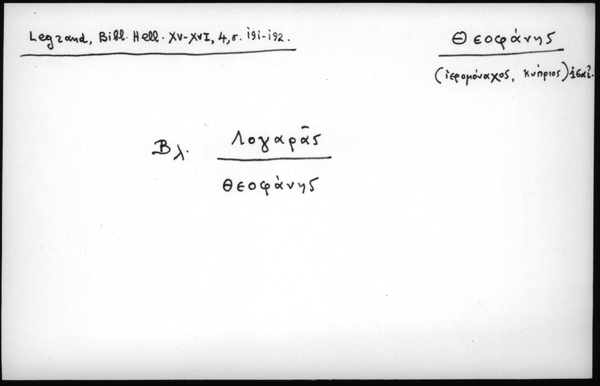 Legrand, Bibl. Hell. XV-XVI, 4, σ. 191-192.
Θεοφάνης
(ἱερομόναχος, κύπριος)
Βλ. Λογαρᾶς
Θεοφάνης